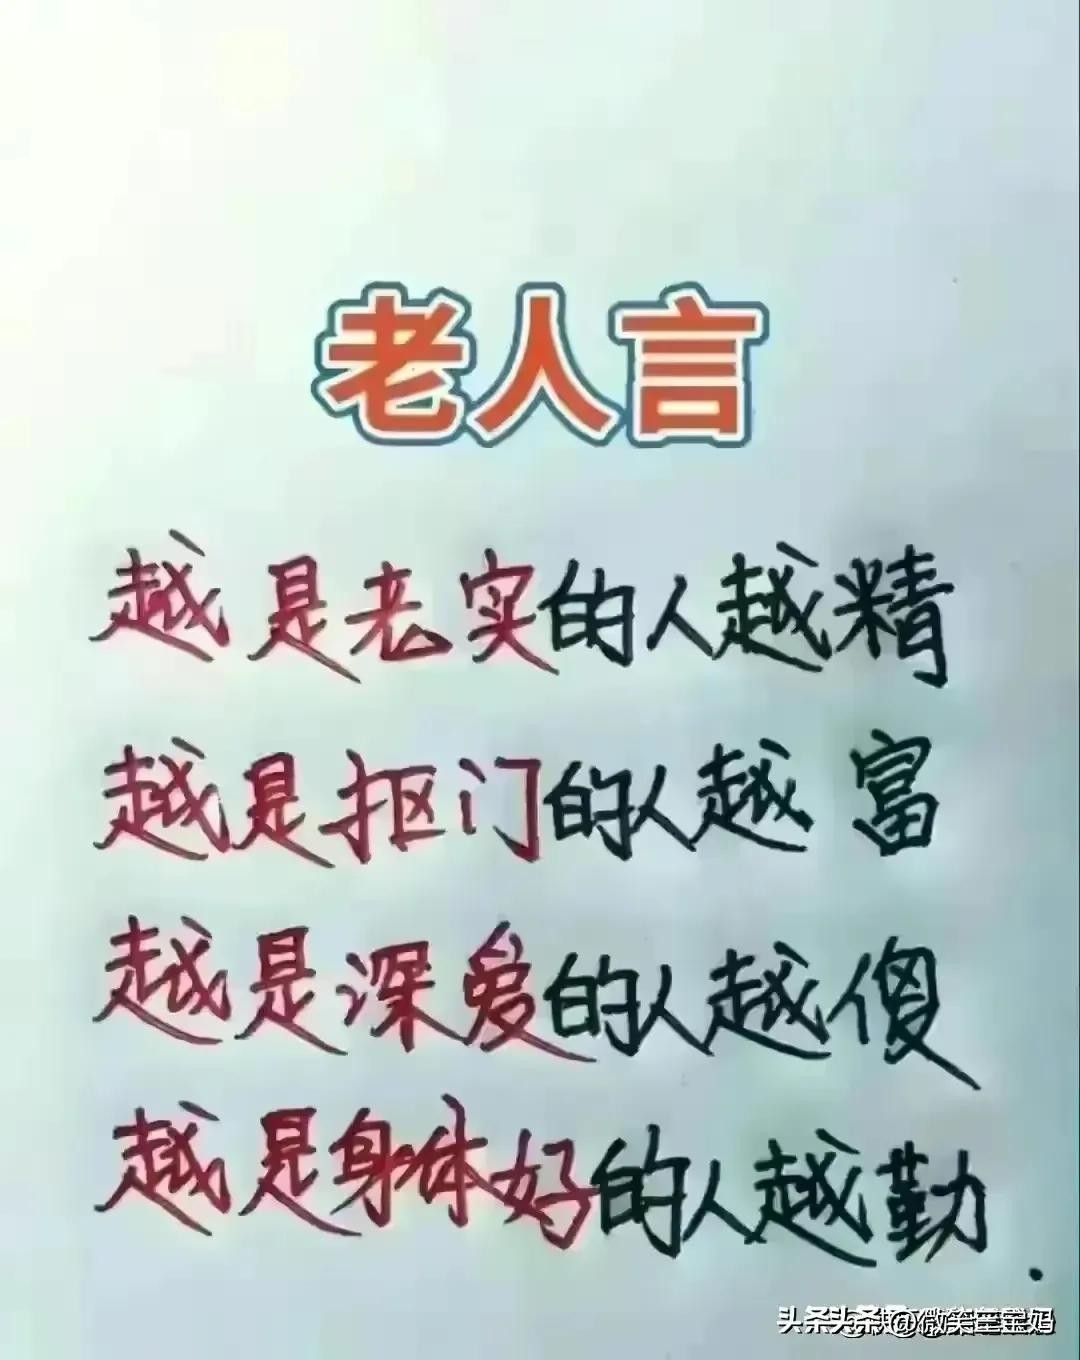 老人言
越是老实的人越精
越是抠门的人越富
越是深爱的人越傻
越是身体好的人越勤.
头条 @微笑三宝妈